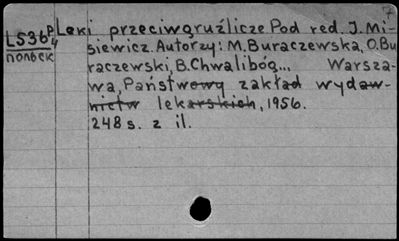 Leki przeciwgruźlicze Pod red. J. Mi-
siewicz. Autorzy: M. Buraczewska, O. Bu
raczewski, B. Chwalibóg... Warsza-
wa, Państwowy zakład wydaw-
nictw lekarskich, 1956.
248 s. z il.
L536
P/4
полбек
7